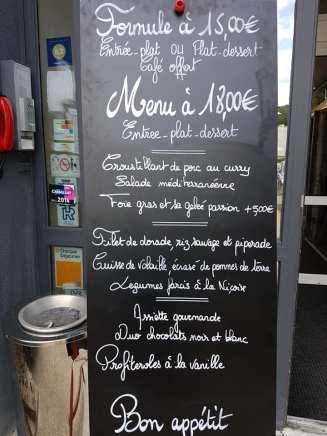 Formule à 15,00€
Entrée-plat ou Plat-dessert
Café offert
Menu à 18,00€
Entrée-plat-dessert
Croustillant de porc au curry
Salade méditerranéenne
Foie gras et sa gelée passion +5,00€
Filet de dorade, riz sauvage et piperade
Cuisse de volaille, écrasé de pommes de terre
Legumes farcis à la Niçoise
Assiette gourmande
Duo chocolats noir et blanc
Profiteroles à la vanille
Bon appétit